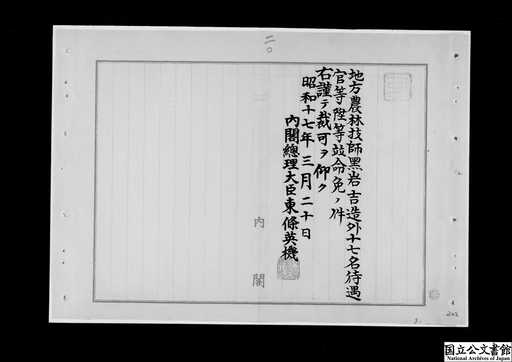 二〇
地方農林技師黒岩吉造外十七名待遇
官等陞等竝命免ノ件
右謹テ裁可ヲ仰ク
昭和十七年三月二十日
內閣總理大臣東條英機
內閣
国立公文書館
National Archives of Japan